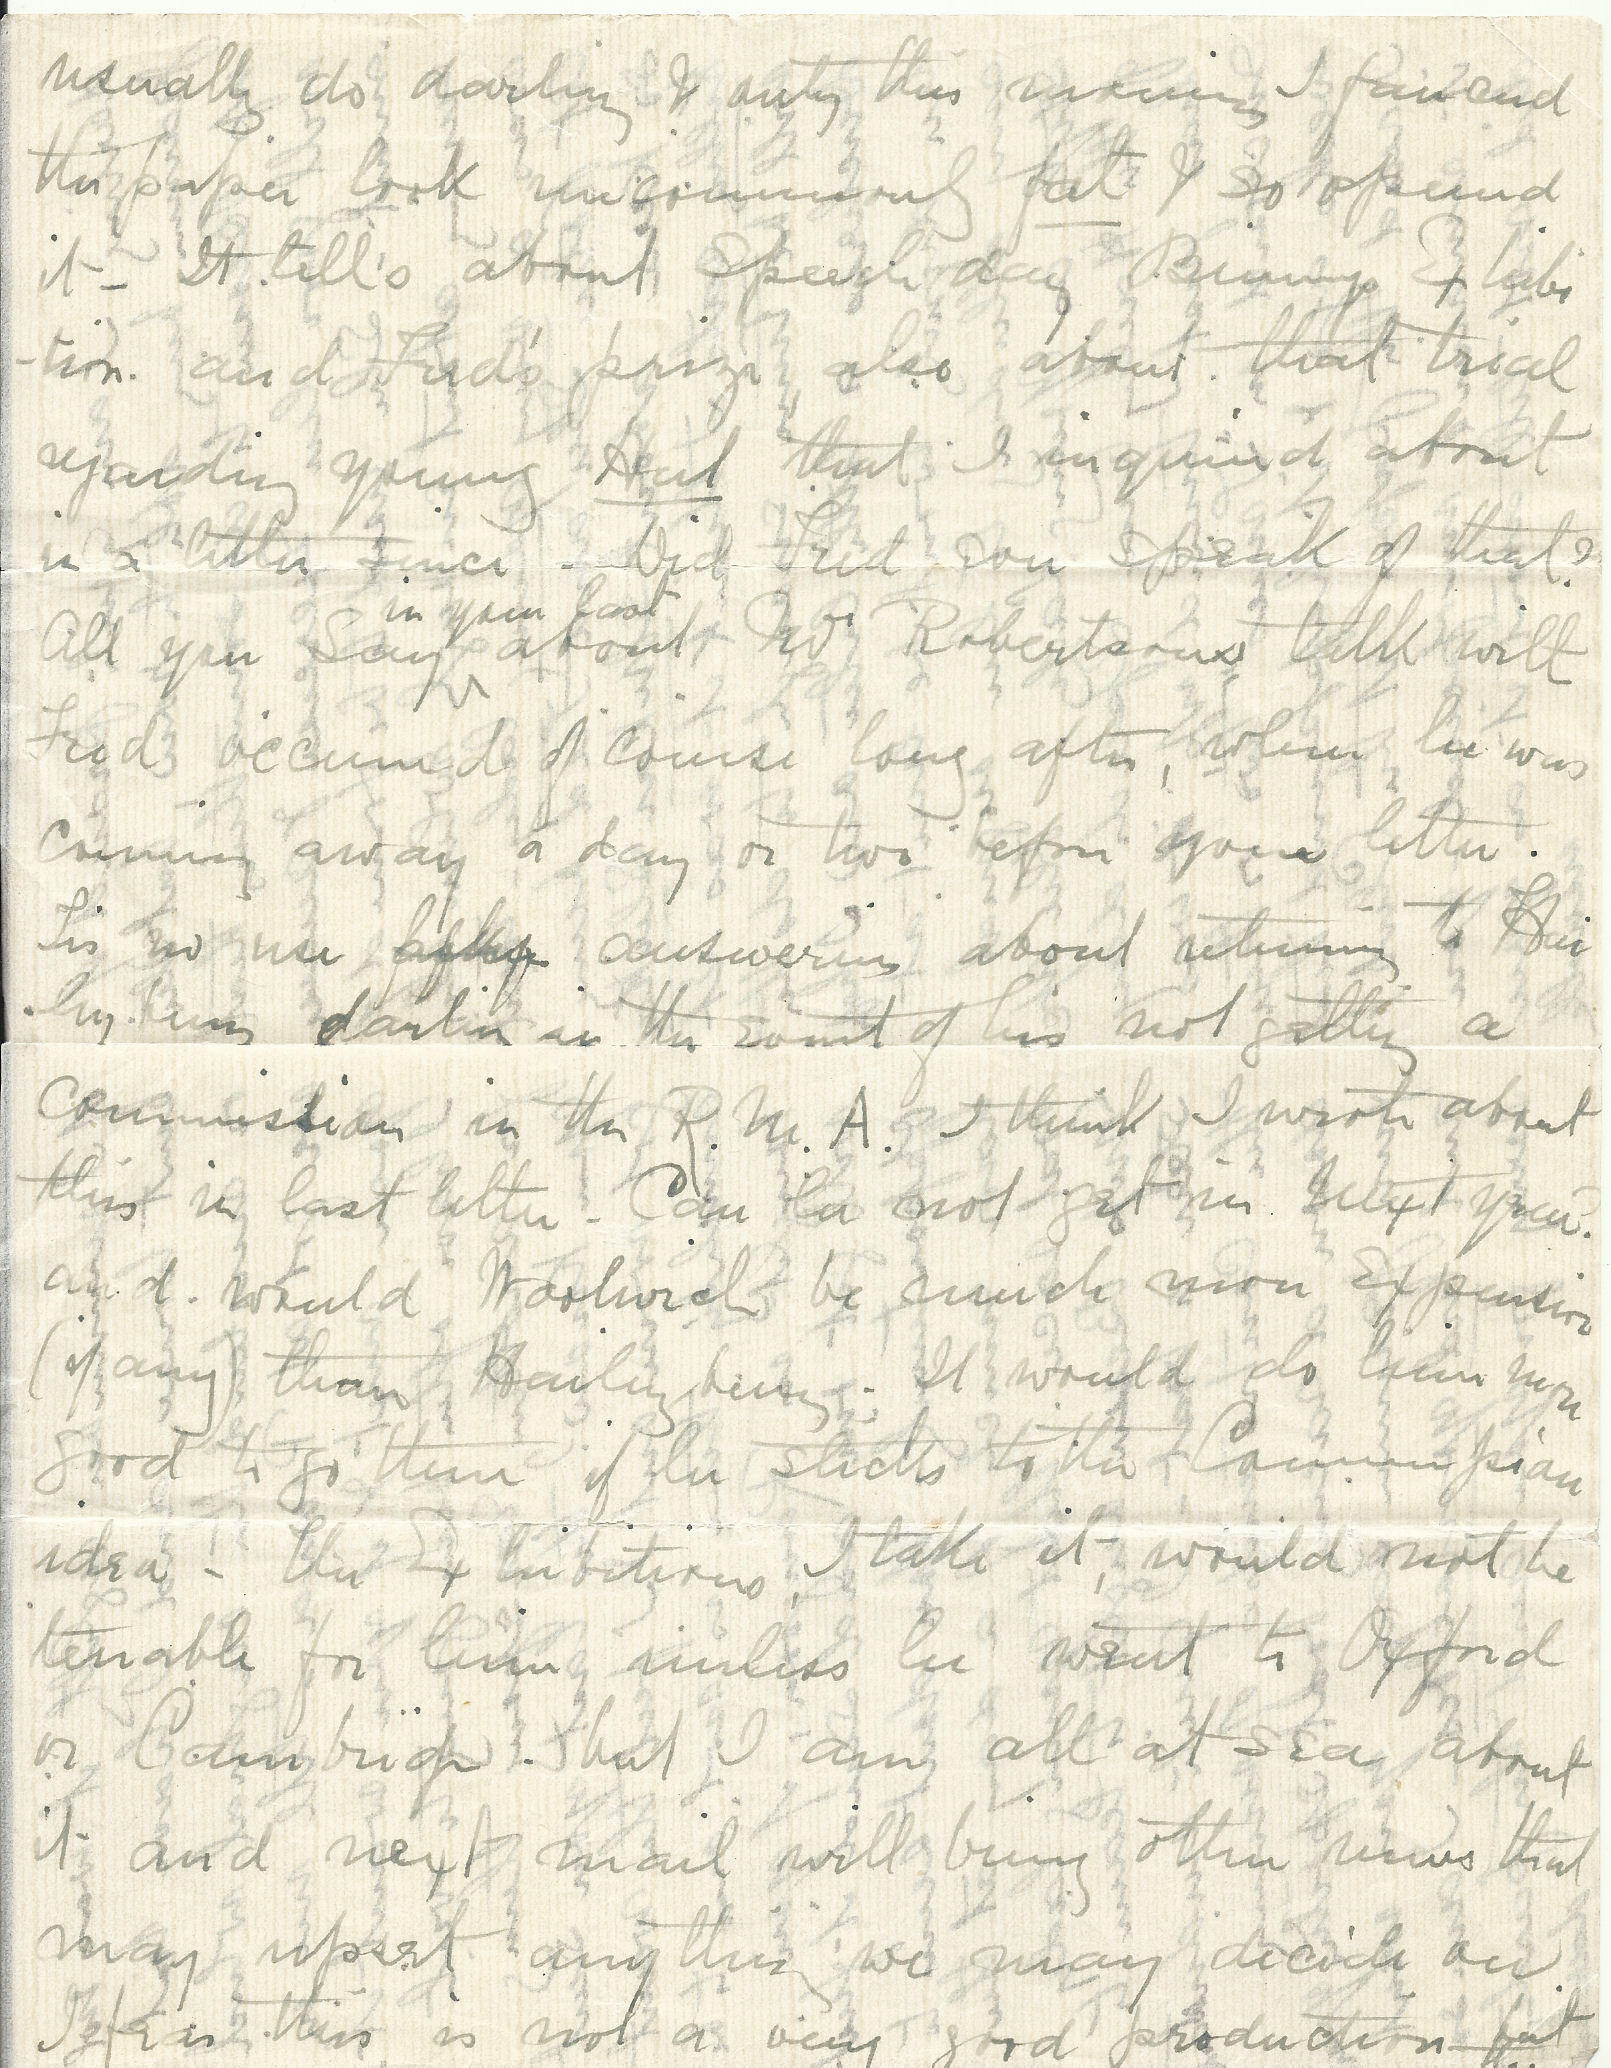 usually do darling & only this morning I fancied
the paper look uncommonly fat & so opened
it - It tells about Speech day Exhibi
-tion. and Fred's prize, also about that trial
regarding young that I inquired about
in a letter since - Did Fred ever speak of that?
All you say in your last about Mr Robertson's talk with
Fred occurred of course long after, when he was
coming away a day or two before your letter.
Tis no use answering about returning to Hai
-leybury darling in the event of his not getting a
commission in the R.M.A. I think I wrote about
this in last letter - Can he not get in next year?
and would Woolwich be much more expensive
(if any) than Haileybury. It would do him more
good to go there if he sticks to the Commission
idea - The Exhibitions, I take it, would not be
tenable for him unless he went to Oxford
or Cambridge. but I am all at sea about
it and next mail will bring other news that
may upset anything we may decide on.
I fear this is not a very good production but